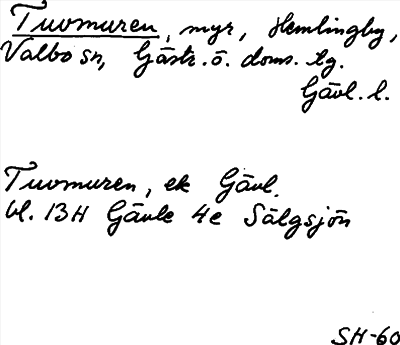 Tuvmuren, myr, Hemlingby,
Valbo sn, Gästr. ö. doms. tg.
Gävl. l.
Tuvmuren, ek Gävl.
bl. 13H Gävle 4e Sälgsjön
SH-60